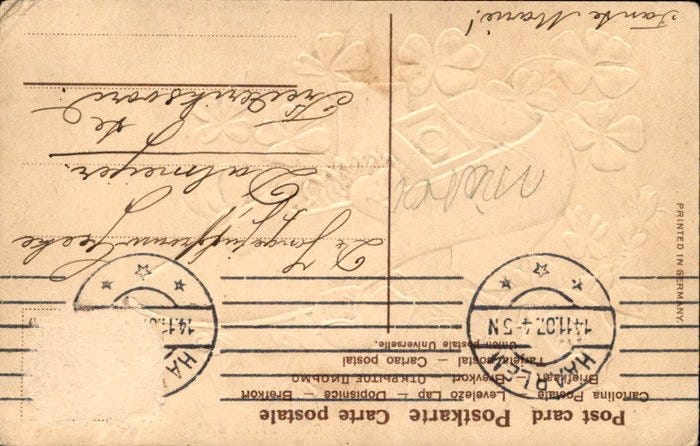 Post card Postkarte Carte postale
Cartolina Postale — Levelező Lap — Dopisnice — Brefkort
Briefkaart — Brevkort — ОТКРЫТОЕ ПИСЬМО
Tarjeta postal — Cartao postal
Union postale Universelle.
HAARLEM
14.11.07.4-5N
HA
14.11.0
De Jongejuffrouw
Dalmeyer
te
Frederiksoord
Tante Marie!
PRINTED IN GERMANY.